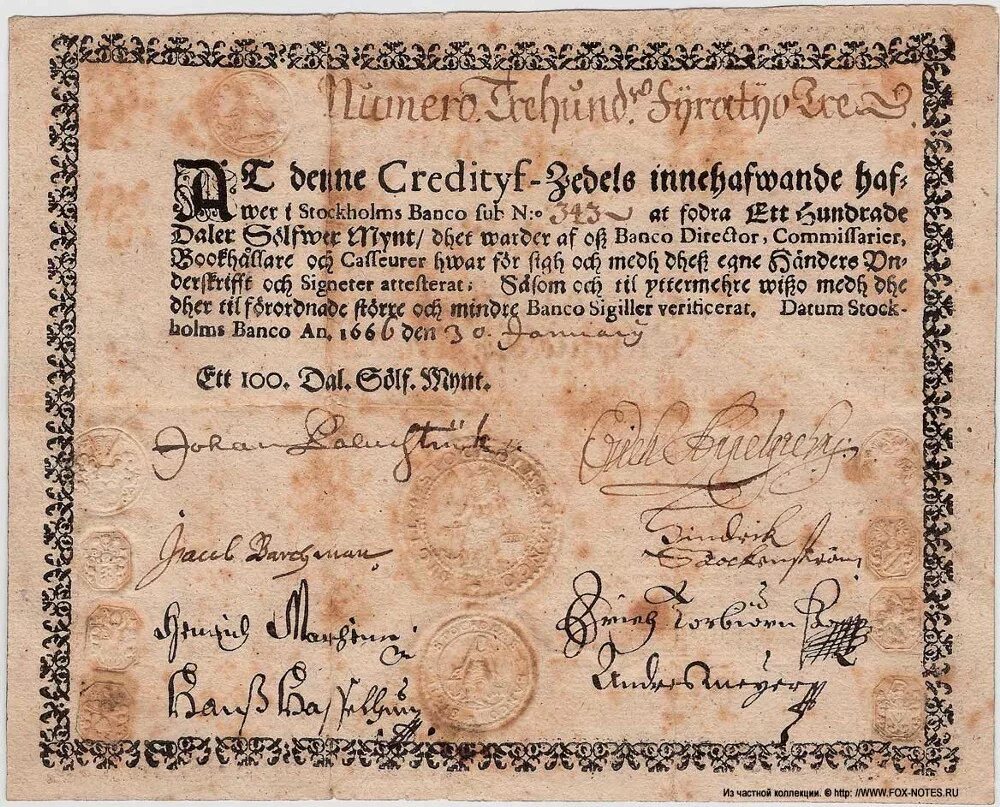 Numero. Trehundro. Fÿratÿo Tre
AT denne Credityf-Zedels innehafwande haf-
wer i Stockholms Banco sub N:o 343 at fodra Ett Hundrade
Daler Sölfwer Mynt/ dhet warder af oß Banco Director, Commissarier,
Bookhållare och Casseurer hwar för sigh och medh dheß egne Händers Vn-
derskrifft och Signeter attesterat; Såsom och til yttermehre wißo medh dhe
dher til förordnade större och mindre Banco Sigiller verificerat. Datum Stock-
holms Banco An. 1666 den 30. January
Ett 100. Dal. Sölf. Mynt.
Johan Palmstruk
Jacob Barchman
Hindrik
Stockenström
Henrich
Erich Torbiörn
Hanß
Andres Meyer
Из частной коллекции. © http: //WWW.FOX-NOTES.RU